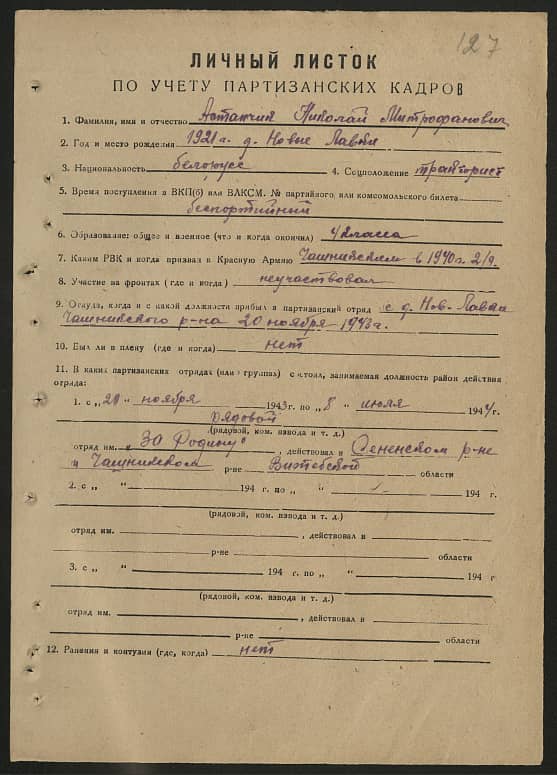 127
ЛИЧНЫЙ ЛИСТОК
ПО УЧЕТУ ПАРТИЗАНСКИХ КАДРОВ
1. Фамилия, имя и отчество Астапчик Николай Митрофанович
2. Год и место рождения 1921 г. д. Новые Лавки
3. Национальность белорусс 4. Соцположение тракторист
5. Время поступления в ВКП(б) или ВЛКСМ. № партийного или комсомольского билета
беспортийный
6. Образование: общее и военное (что и когда окончил) 4 класса
7. Каким РВК и когда призван в Красную Армию Чашникским в 1940 г.
8. Участие на фронтах (где и когда) неучаствовал
9. Откуда, когда и с какой должности прибыл в партизанский отряд с д. Нов-Лавки
Чашникского р-на 20 ноября 1943 г.
10. Был ли в плену (где и когда) нет
11. В каких партизанских отрядах (или группах) состоял, занимаемая должность район действия
отряда:
1. с „20 " ноября 1943 г. по „8 " июля 1944 г.
рядовой
(рядовой, ком. взвода и т. д.)
отряд им. „За Родину" , действовал в Сененском р-не
и Чашникском р-не Витебской области
2. с „ " 194 г. по „ " 194 г.
(рядовой, ком. взвода и т. д.)
отряд им. , действовал в
р-не области
3. с „ " 194 г. по „ " 194 г
(рядовой, ком. взвода и т. д.)
отряд им. , действовал в
р-не области
12. Ранения и контузии (где, когда) нет